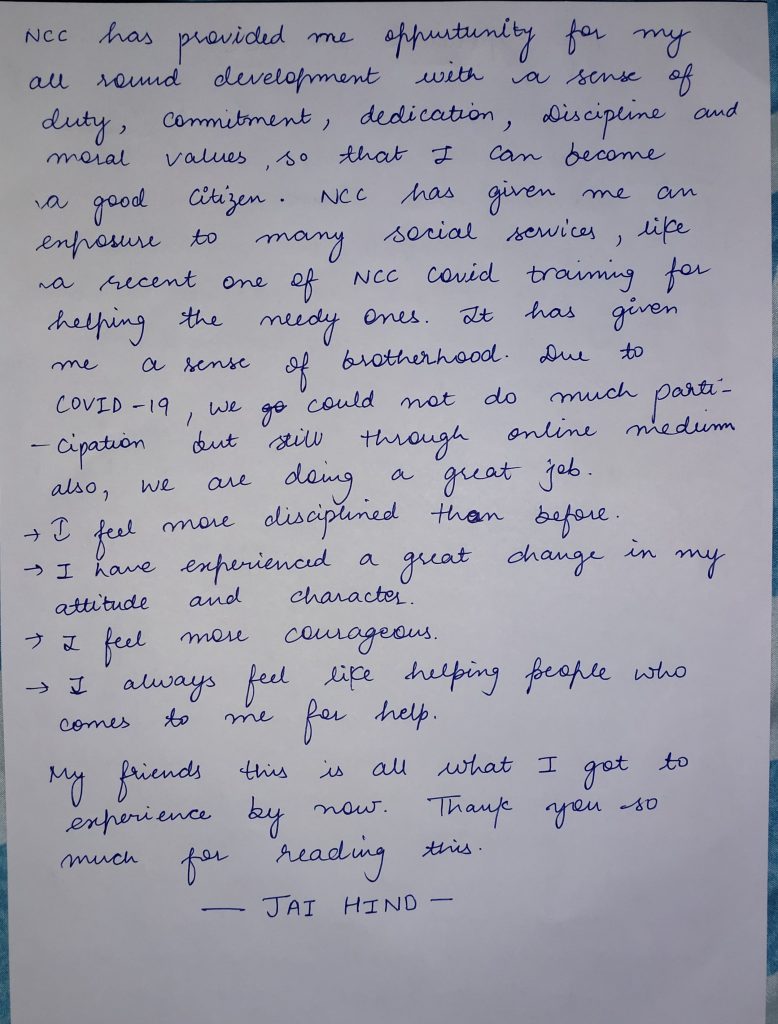 NCC has provided me oppurtunity for my
all round development with a sense of
duty, Commitment, dedication, Discipline and
moral values, so that I can become
a good Citizen. NCC has given me an
exposure to many social services, like
a recent one of NCC Covid training for
helping the needy ones. It has given
me a sense of brotherhood. Due to
COVID-19, we go could not do much parti-
- cipation but still through online medium
also, we are doing a great job.
→ I feel more disciplined than before.
→ I have experienced a great change in my
attitude and character.
→ I feel more courageous.
→ I always feel like helping people who
comes to me for help.
My friends this is all what I got to
experience by now. Thank you so
much for reading this.
— JAI HIND —